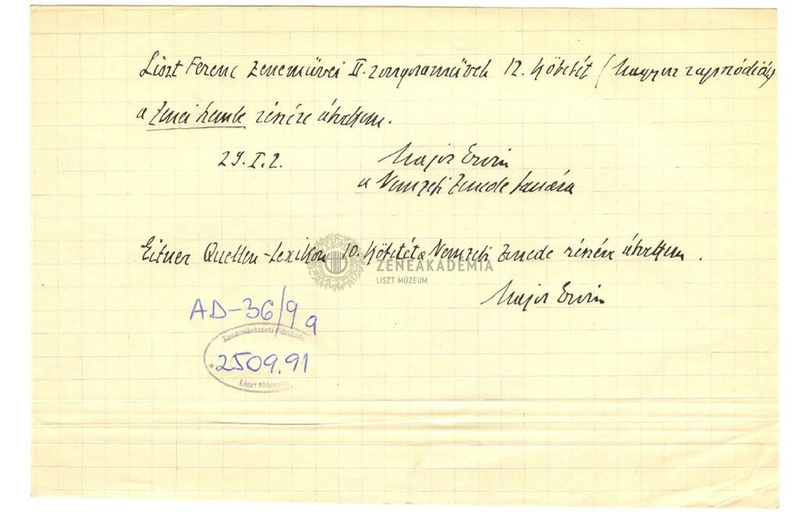 Liszt Ferenc Zeneművei II. zongoraművek 12. kötetét (Magyar rapszódiák)
a Zenei Szemle részére átvettem.
29. I. 2.
Major Ervin
a Nemzeti Zenede tanára
Eitner Quellen-Lexikon 10. kötetét a Nemzeti Zenede részére átvettem.
ZENEAKADÉMIA
LISZT MÚZEUM
Major Ervin
AD-36/9 a
Zeneművészeti Főiskola
2509.91
Liszt Múzeum